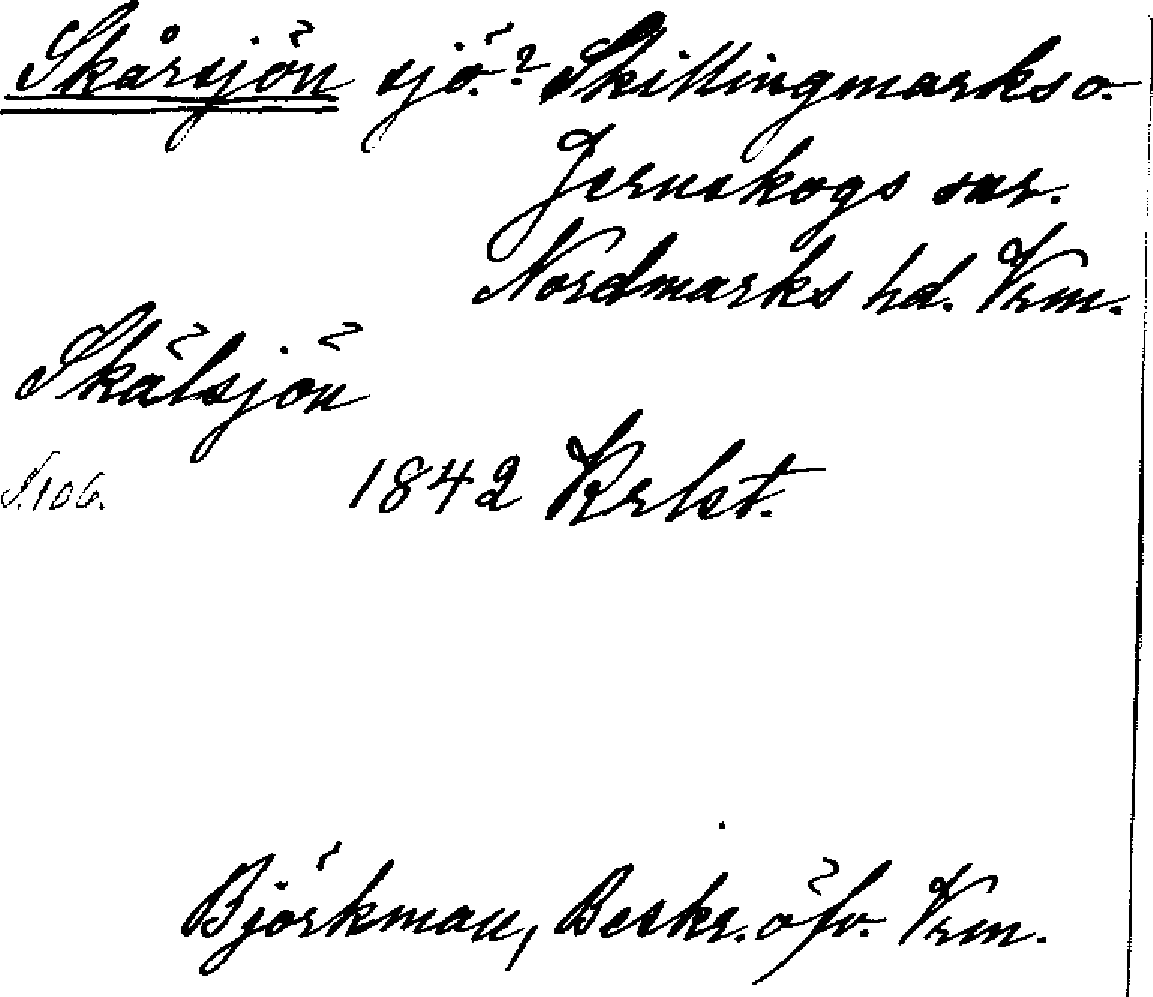 Skårsjön sjö? Skillingmarks o.
Jernskogs snr.
Nordmarks hd. Vrm.
Skälsjön
S. 106. 1842 Krlst.
Björkman, Beskr. öfv. Vrm.